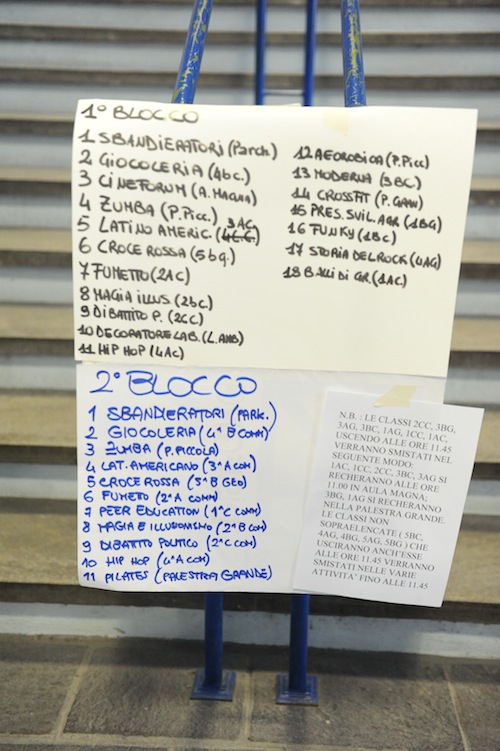 1° BLOCCO
1 SBANDIERATORI (Parch.)
2 GIOCOLERIA (4bc.)
3 CINEFORUM (A. MAGNA)
4 ZUMBA (P. Picc.)
5 LATINO AMERIC. 3AC
6 CROCE ROSSA (5bg.)
7 FUMETTO (2AC)
8 MAGIA ILLUS (2bc.)
9 DIBATTITO P. (2CC)
10 DECORATORE LAB. (L. AMB)
11 HIP HOP (4AC)
12 AEOROBICA (P. Picc)
13 MODERNA (3BC.)
14 CROSSFIT (P. GRAN)
15 PRES. SVIL. AAR. (1BG)
16 FUNKY (1BC)
17 STORIA DEL ROCK (4AG)
18 BALLI DI GR. (1AC)
2° BLOCCO
1 SBANDIERATORI (PARK.)
2 GIOCOLERIA (4^A B COMM)
3 ZUMBA (P. PICCOLA)
4 LAT. AMERICANO (3^A A COM)
5 CROCE ROSSA (5^A B GEO)
6 FUMETTO (2^A A COMM)
7 PEER EDUCATION (1^A C COMM)
8 MAGIA E ILLUSIONISMO (2^A B COM)
9 DIBATTITO POLITICO (2^A C COM)
10 HIP HOP (4^A A COM)
11 PILATES (PALESTRA GRANDE)
N.B. : LE CLASSI 2CC, 3BG,
3AG, 3BC, 1AG, 1CC, 1AC,
USCENDO ALLE ORE 11.45
VERRANNO SMISTATI NEL
SEGUENTE MODO:
1AC, 1CC, 2CC, 3BC, 3AG SI
RECHERANNO ALLE ORE
11.00 IN AULA MAGNA;
3BG, 1AG SI RECHERANNO
NELLA PALESTRA GRANDE.
LE CLASSI NON
SOPRAELENCATE ( 5BC,
4AG, 4BG, 5AG, 5BG ) CHE
USCIRANNO ANCH'ESSE
ALLE ORE 11.45 VERRANNO
SMISTATI NELLE VARIE
ATTIVITA' FINO ALLE 11.45